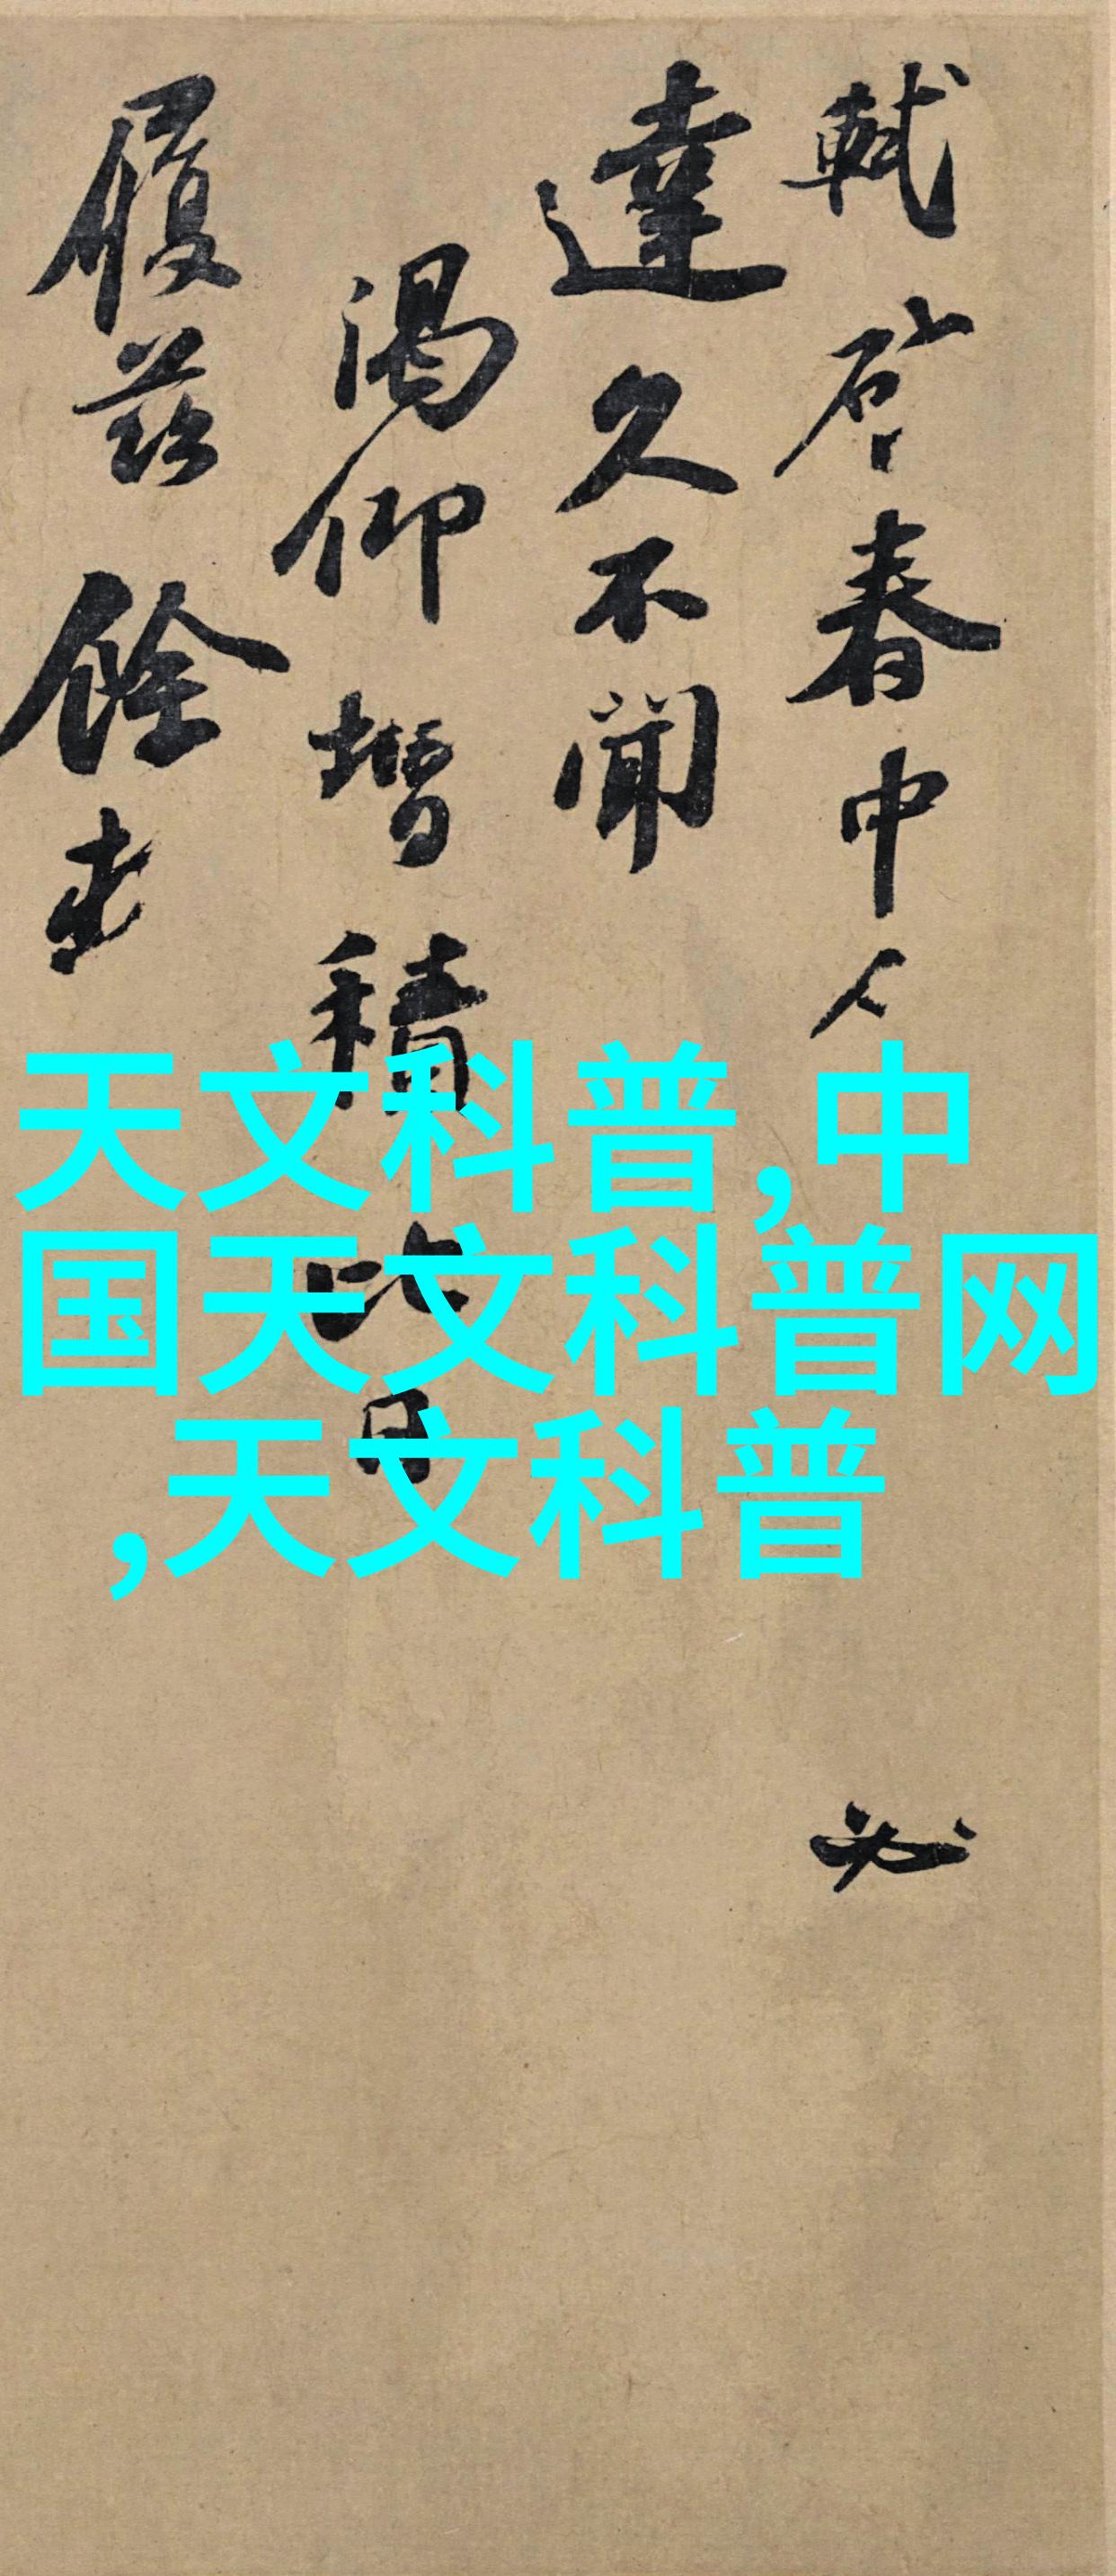 軾啓春中人
必
達久不聞
渴仰增積比日
履茲餘
天文科普,中
国天文科普网
,天文科普